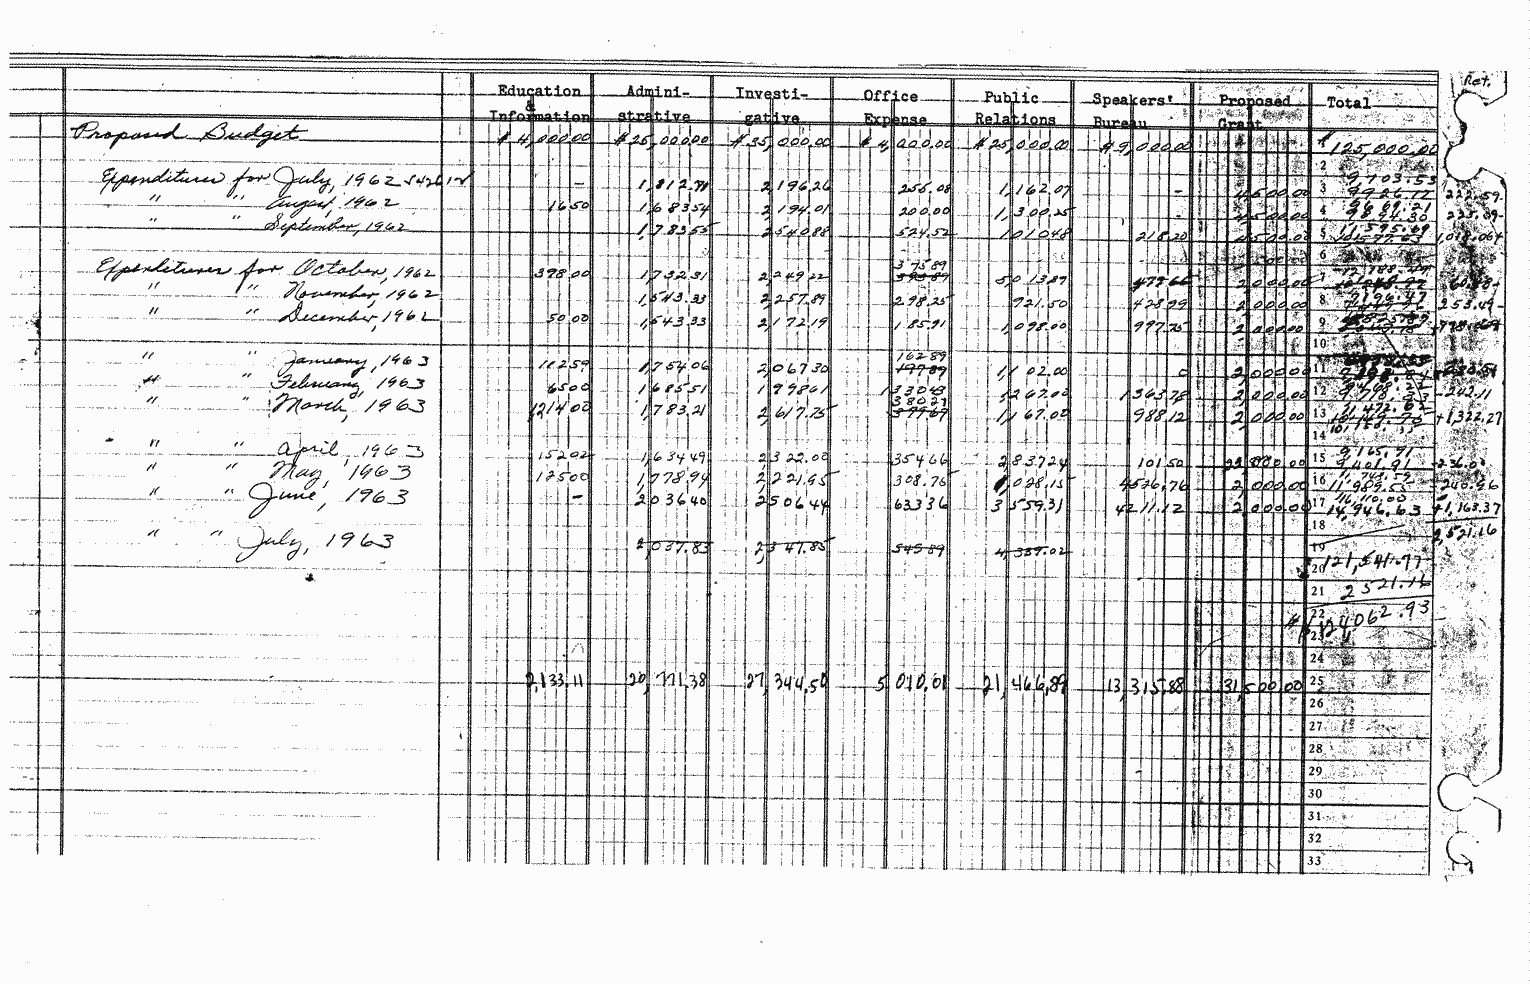 Ret.
Education Admini- Investi- Office Public Speakers' Proposed Total
&
Information strative gative Expense Relations Bureau Grant
Proposed Budget $ 4,000.00 $ 25,000.00 $ 35,000.00 $ 4,000.00 $ 25,000.00 $ 9,000.00 125,000.00
2
9,703.53
Expenditures for July, 1962 - 2,196.26 256.08 1,162.07 - 4,500.00 3
" " August, 1962 16.50 1,683.54 2,194.01 200.00 1,300.25 - 4,500.00 4
" " September, 1962 1,783.55 2,540.88 524.52 1,010.48 218.20 4,500.00 5
6
375.89
Expenditures for October, 1962 398.00 1,732.31 2,249.22 5,013.89 479.66 2,000.00 7
" " November, 1962 1,543.33 2,257.89 298.25 721.50 428.99 2,000.00 8
" " December, 1962 50.00 1,543.33 2,172.19 185.91 1,098.00 997.75 2,000.00 9
10
162.89
" " January, 1963 112.59 1,754.06 2,067.30 197.89 1,102.00 0 2,000.00 11
" " February, 1963 65.00 1,685.51 1,998.61 1,330.43 5,267.00 1,363.78 2,000.00 12 -242.11
380.27
" " March, 1963 1,214.00 1,783.21 2,617.75 379.67 1,167.00 988.12 2,000.00 13 11,472.62 +1,322.27
14
9,165.91
" " April, 1963 152.02 1,634.49 2,322.00 354.66 2,837.24 101.50 15 9,401.91 -236.00
" " May, 1963 125.00 1,778.94 2,221.95 308.75 1,028.15 4,526.76 2,000.00 16
16,110.00
" " June, 1963 - 2,036.40 2,506.44 633.36 3,559.31 4,211.12 2,000.00 17 14,946.63 +1,163.37
18 2,521.16
" " July, 1963 2,037.83 2,347.85 545.89 4,389.02 19
20 121,541.77
21 2521.16
22 $ 124062.93
23
24
2,133.11 20,771.38 27,344.50 5,010.01 21,466.89 13,315.88 31,500.00 25
26
27
28
29
30
31
32
33